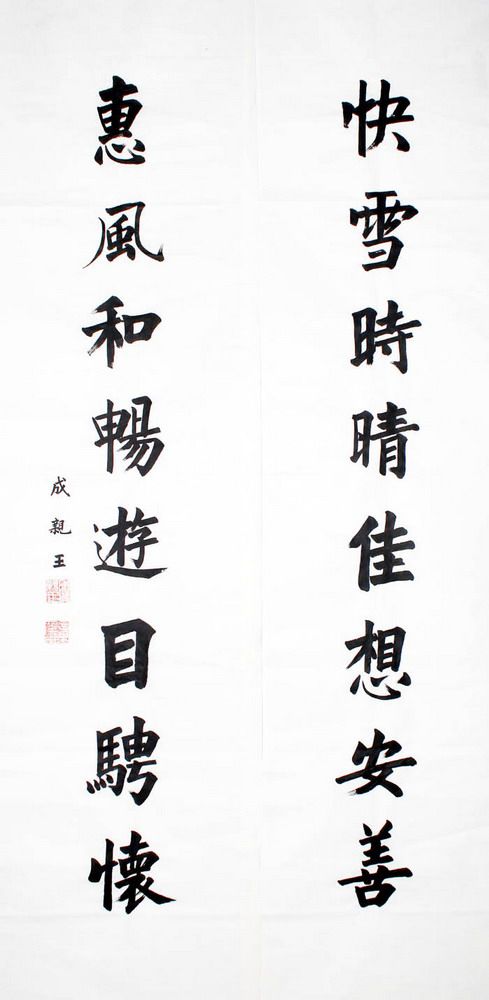 快雪時晴佳想安善
惠風和暢遊目騁懷
成親王